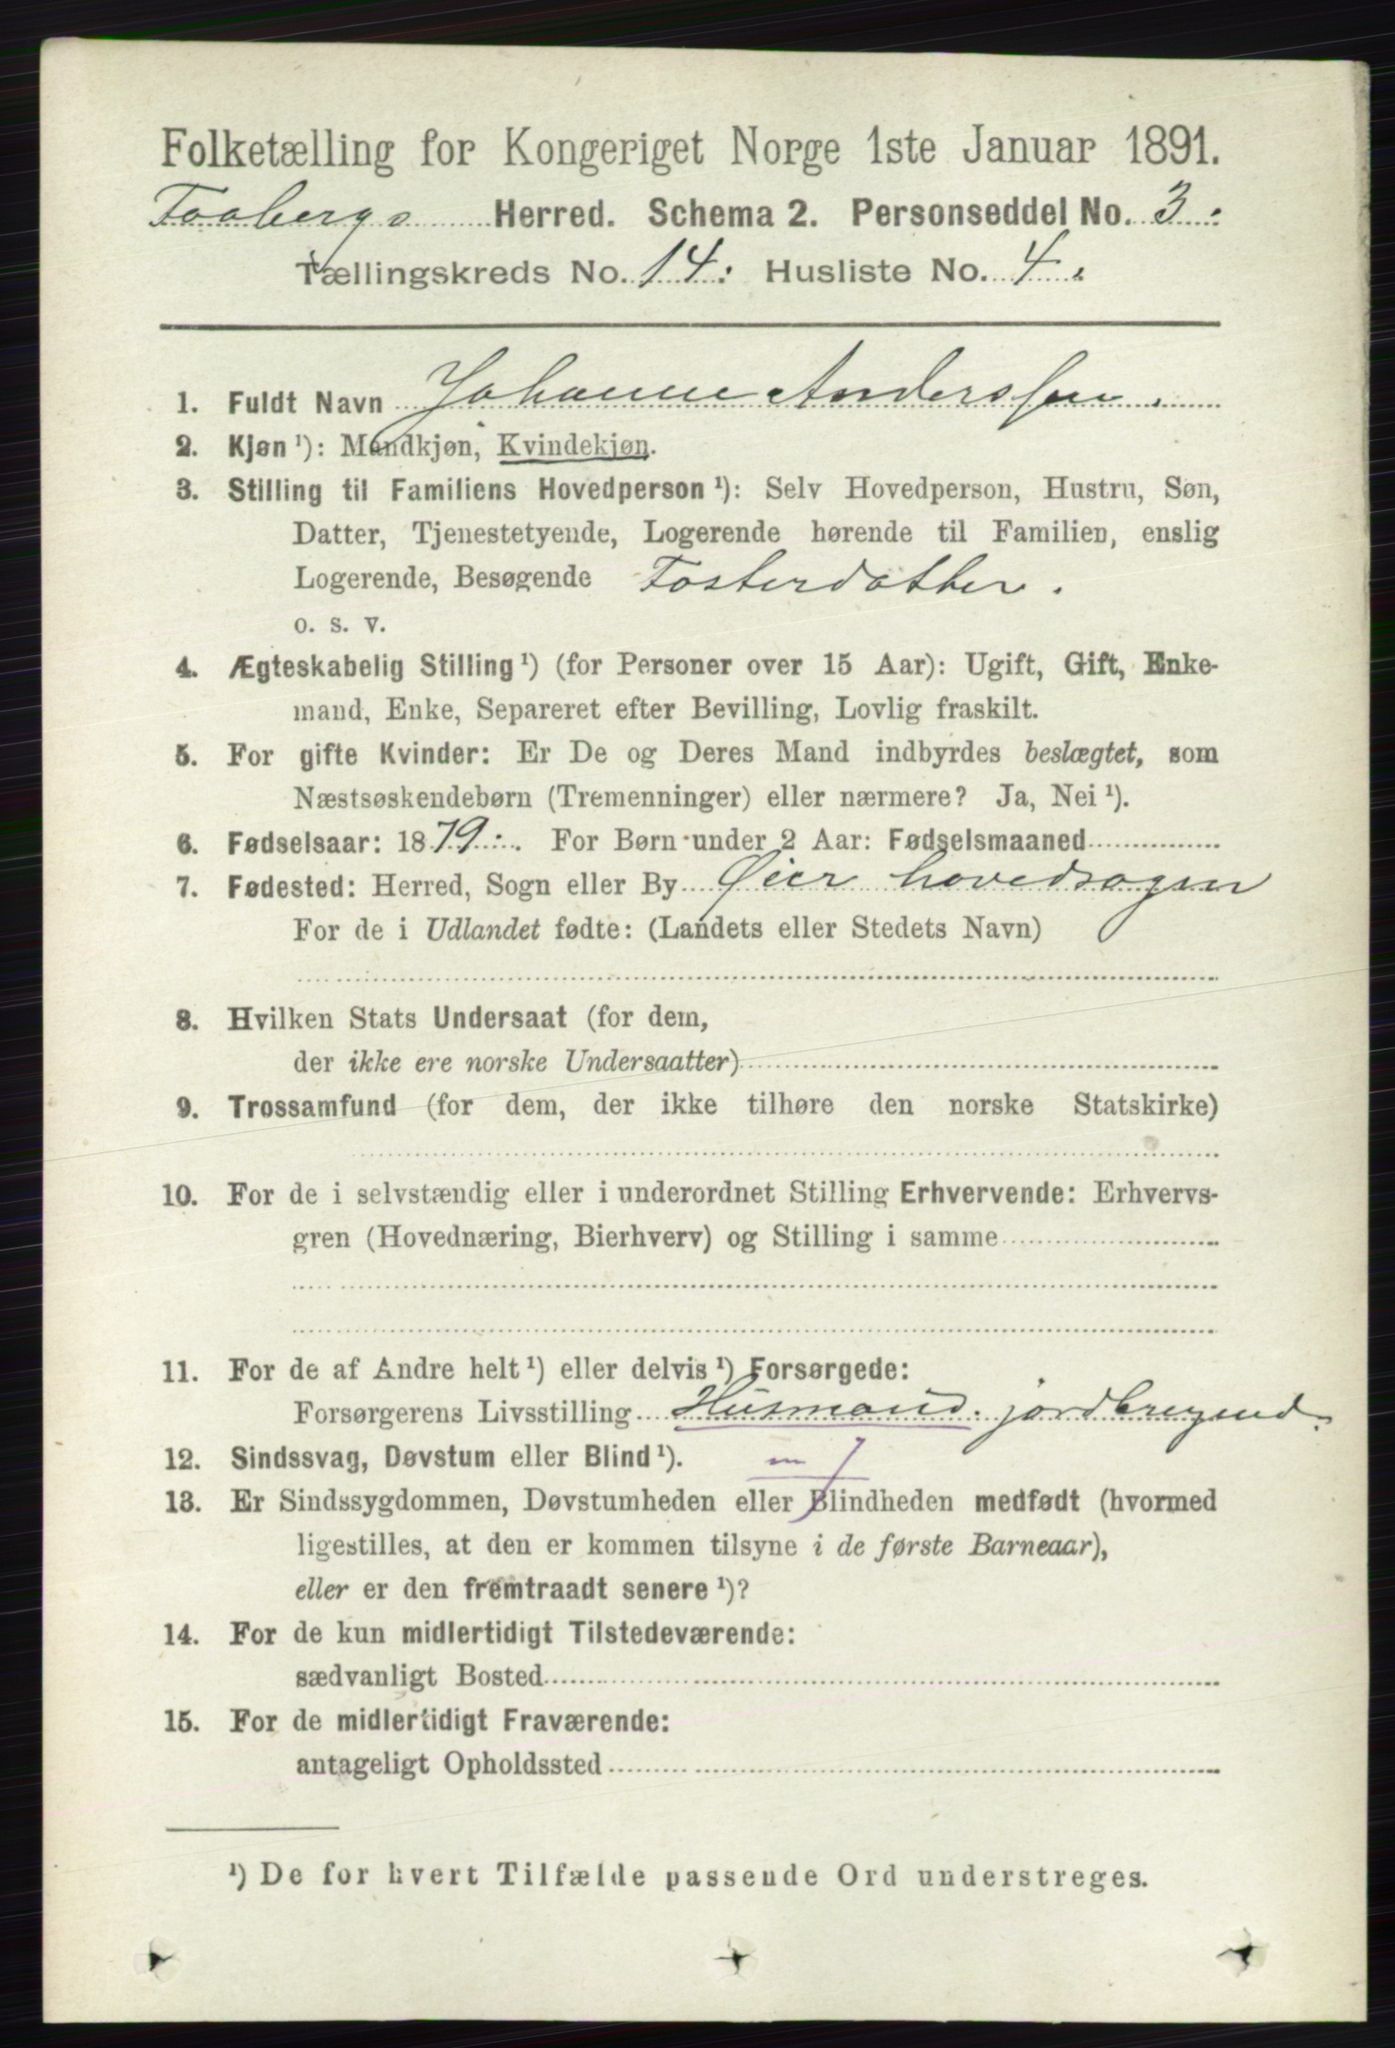 Folketælling for Kongeriget Norge 1ste Januar 1891.
Faabergs Herred. Schema 2. Personseddel No. 3.
Tællingskreds No. 14. Husliste No. 4.
1. Fuldt Navn Johanne Anderssen.
2. Kjøn ¹): Mandkjøn, Kvindekjøn.
3. Stilling til Familiens Hovedperson ¹): Selv Hovedperson, Hustru, Søn,
Datter, Tjenestetyende, Logerende hørende til Familien, enslig
Logerende, Besøgende Fosterdatter.
o. s. v.
4. Ægteskabelig Stilling ¹) (for Personer over 15 Aar): Ugift, Gift, Enke-
mand, Enke, Separeret efter Bevilling, Lovlig fraskilt.
5. For gifte Kvinder: Er De og Deres Mand indbyrdes beslægtet, som
Næstsøskendebørn (Tremenninger) eller nærmere? Ja, Nei ¹).
6. Fødselsaar: 1879. For Børn under 2 Aar: Fødselsmaaned
7. Fødested: Herred, Sogn eller By Øier hovedsogn
For de i Udlandet fødte: (Landets eller Stedets Navn)
8. Hvilken Stats Undersaat (for dem,
der ikke ere norske Undersaatter)
9. Trossamfund (for dem, der ikke tilhøre den norske Statskirke)
10. For de i selvstændig eller i underordnet Stilling Erhvervende: Erhvervs-
gren (Hovednæring, Bierhverv) og Stilling i samme
11. For de af Andre helt ¹) eller delvis ¹) Forsørgede:
Forsørgerens Livsstilling Husmand. jordbrugend.
12. Sindssvag, Døvstum eller Blind ¹).
13. Er Sindssygdommen, Døvstumheden eller Blindheden medfødt (hvormed
ligestilles, at den er kommen tilsyne i de første Barneaar),
eller er den fremtraadt senere ¹)?
14. For de kun midlertidigt Tilstedeværende:
sædvanligt Bosted
15. For de midlertidigt Fraværende:
antageligt Opholdssted
¹) De for hvert Tilfælde passende Ord understreges.